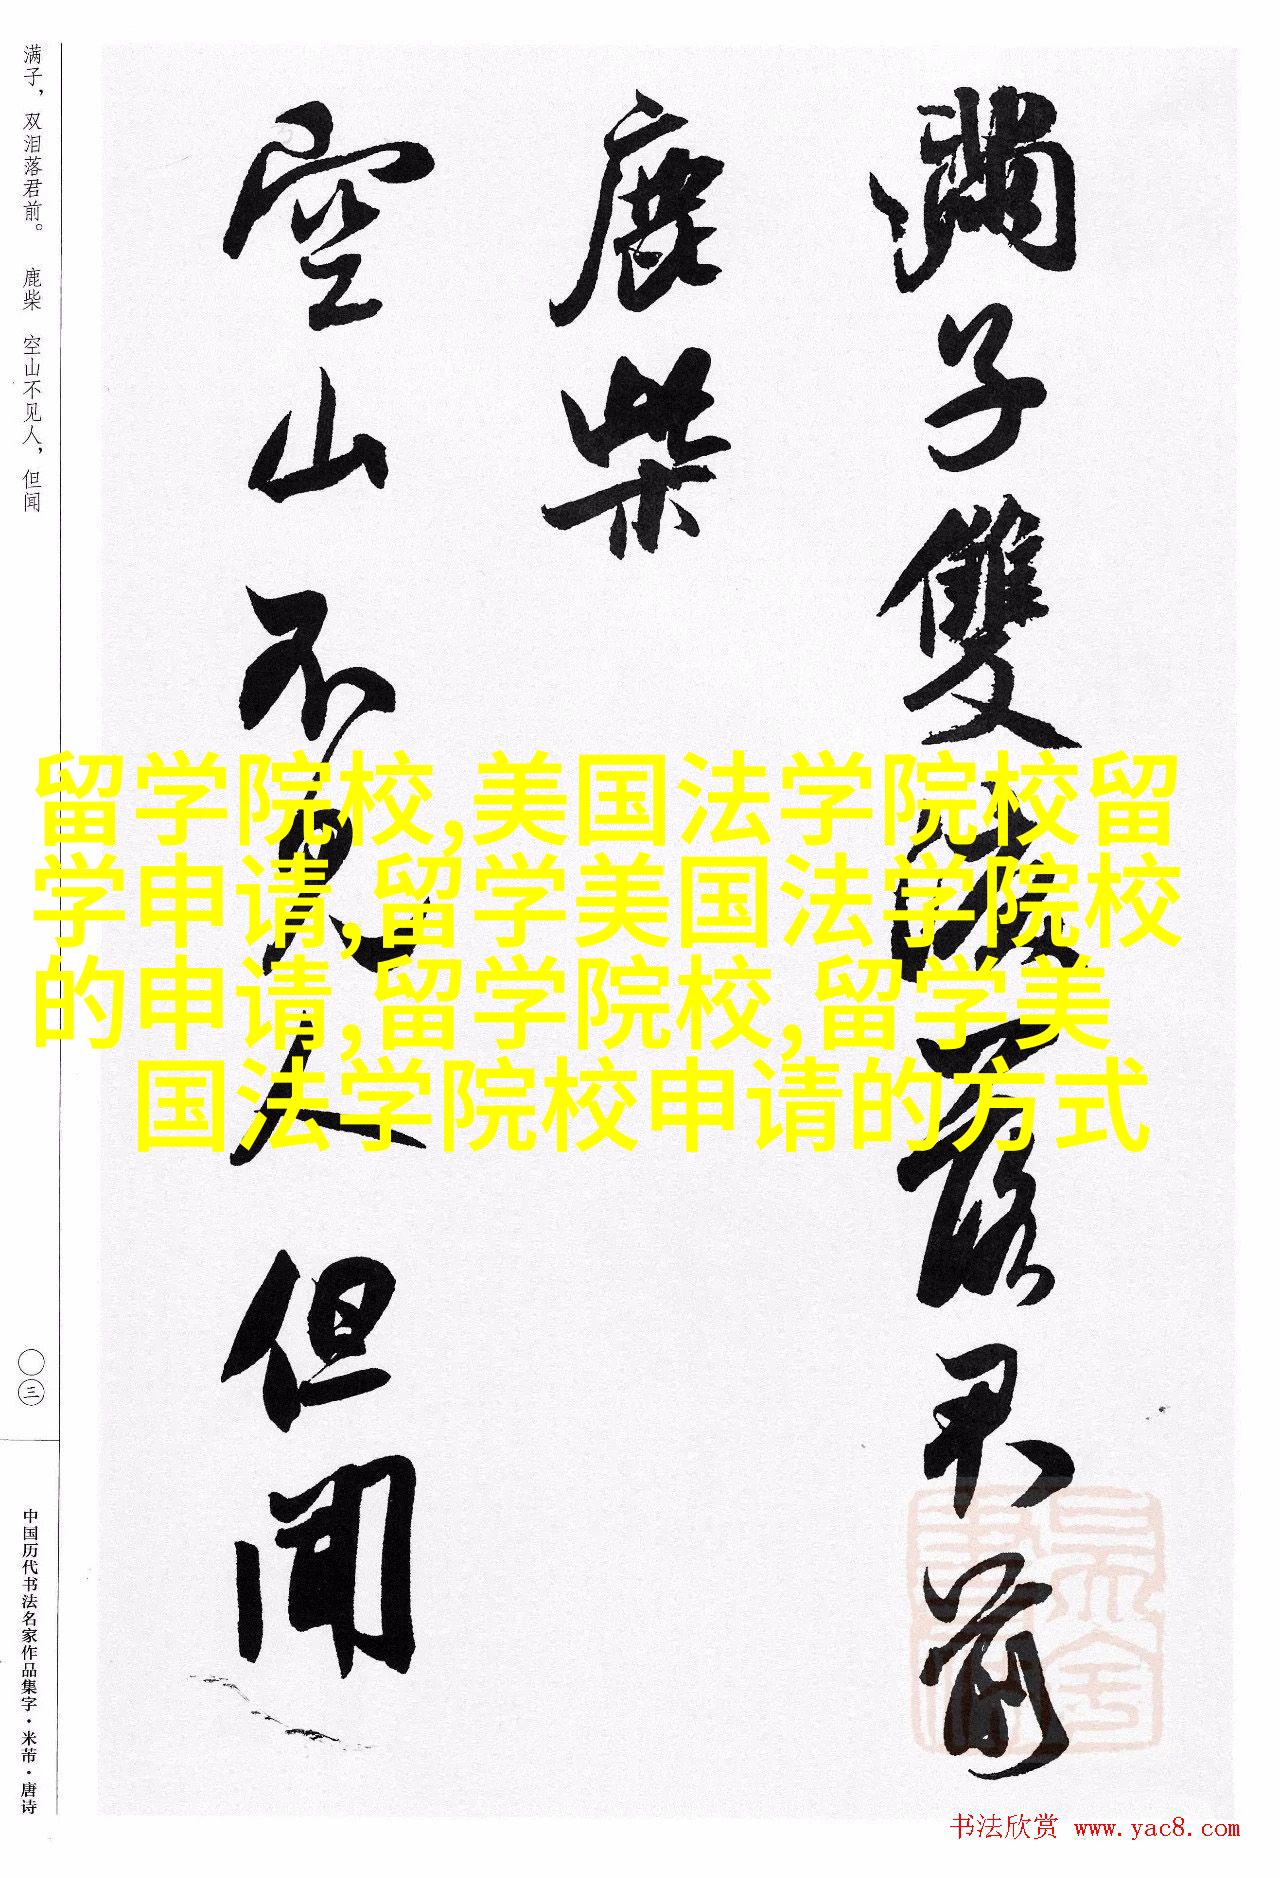 滿子雙淚落君前
鹿柴
空山不見人但聞
满子，双泪落君前。 鹿柴 空山不见人，但闻
〇三
中国历代书法名家作品集字·米芾·唐诗
留学院校,美国法学院校留
学申请,留学美国法学院校
的申请,留学院校,留学美
国法学院校申请的方式
书法欣赏 www.yac8.com